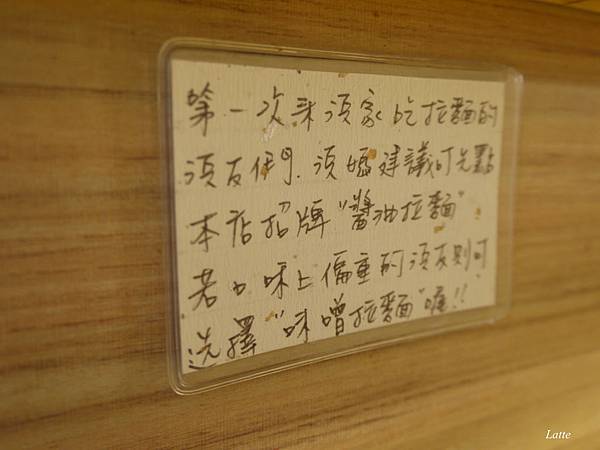 第一次來須家吃拉麵的
須友們.須嬤建議可先點
本店招牌"醬油拉麵"
若口味上偏重的須友則可
選擇"味噌拉麵"喔!!
Latte